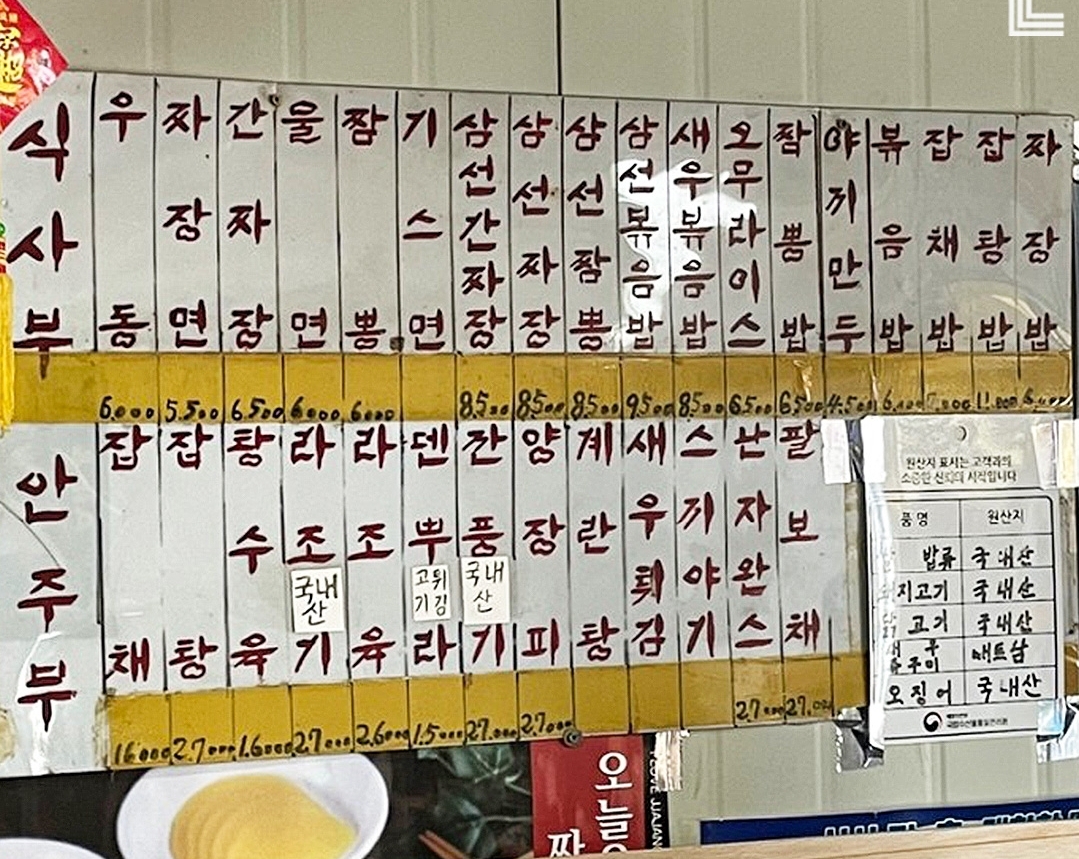 식사부
우동 6,000
짜장면 5,500
간짜장 6,500
울면 6,000
짬뽕 6,000
기스면
삼선간짜장 8,500
삼선짜장 8,500
삼선짬뽕 8,500
삼선볶음밥 9,500
새우볶음밥 8,500
오무라이스 6,500
짬뽕밥 6,500
야끼만두 4,500
볶음밥
잡채밥
잡탕밥
짜장밥
안주부
잡채 16,000
잡탕 27,000
탕수육 16,000
라조기 국내산 27,000
라조육 26,000
덴뿌라 고기튀김 15,000
깐풍기 국내산 27,000
양장피 27,000
계란탕
새우튀김
스끼야기
난자완스 27,000
팔보채 27,000
원산지 표시는 고객과의
소중한 신뢰의 시작입니다
품명 원산지
밥류 국내산
지고기 국내산
고기 국내산
우
쭈꾸미 베트남
오징어 국내산
오늘은
짜
LOVE JJAJANG